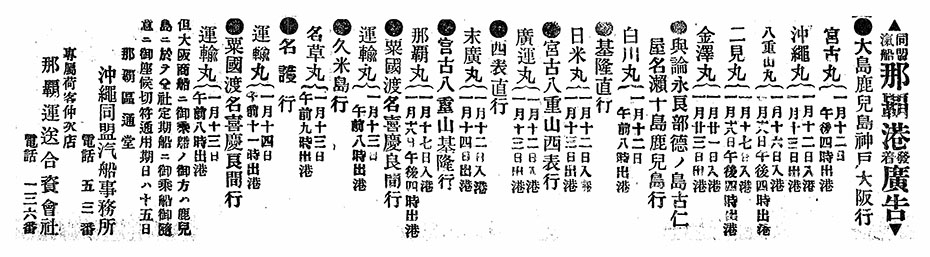 ▲同盟汽船那覇港發着廣告▼
●大島鹿兒島神戸大阪行
宮古丸 一月十二日午後四時出港
沖繩丸 一月十三日入港 一月十六日午後四時出港
八重山丸 一月十六日午後四時出港
二見丸 一月十七日入港 一月十八日午後四時出港
金澤丸 一月廿日入港 一月廿一日出港
●與論永良部德ノ島古仁屋名瀬十島鹿兒島行
白川丸 一月十二日午前出港
●基隆直行
日米丸 一月十二日入港 一月十三日出港
●宮古八重山西表行
廣運丸 一月十三日出港
●西表直行
末廣丸 一月十二日入港 一月十三日出港
●宮古八重山基隆行
那覇丸 一月十七日入港 一月十八日午後四時出港
●粟國渡名喜慶良間行
運輸丸 一月十三日午前八時出港
●久米島行
名草丸 一月十三日午前九時出港
●名護行
運輸丸 一月十四日午前十一時出港
●粟國渡名喜慶良間行
運輸丸 一月十三日午前八時出港
但大阪商船ニ御乘船ノ御方ハ鹿兒
島ニ於テ仝社定期船ニ御乘船御随
意ニ御座候切符通用期日ハ十五日
那覇區通堂
沖繩同盟汽船事務所
電話 五三番
專屬荷客仲次店
那覇運送合資會社
電話 一三六番